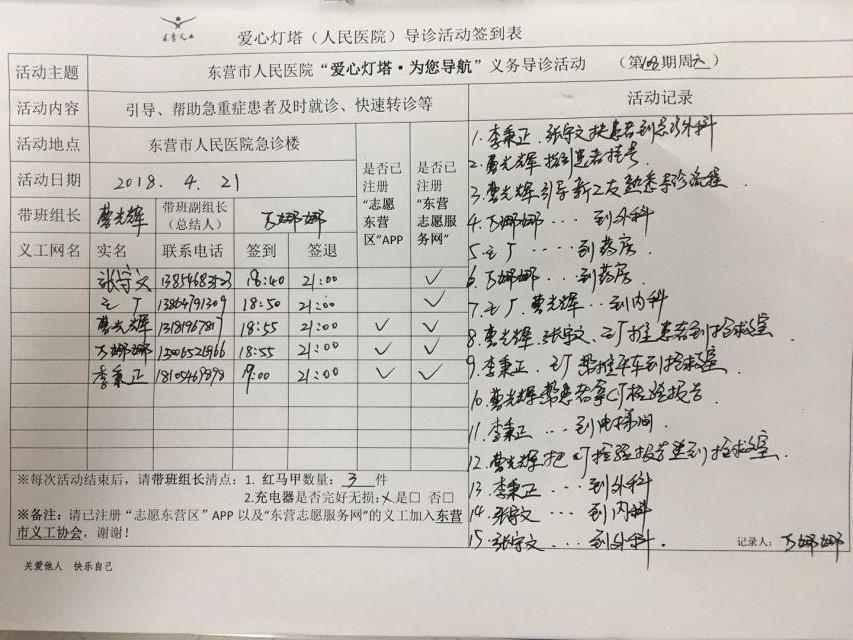 东营义工
爱心灯塔（人民医院）导诊活动签到表
活动主题 东营市人民医院“爱心灯塔·为您导航”义务导诊活动 （第108期周六）
活动内容 引导、帮助急重症患者及时就诊、快速转诊等 活动记录
活动地点 东营市人民医院急诊楼
是否已注册“志愿东营区”APP
是否已注册“东营志愿服务网”
活动日期 2018.4.21
带班组长 曹光辉 带班副组长（总结人） 万娜娜
义工网名 实名 联系电话 签到 签退
张守文 18:40 21:00 ✓
王厂 13864791309 18:50 21:00 ✓
曹光辉 18:55 21:00 ✓ ✓
万娜娜 18:55 21:00 ✓ ✓
李秉正 19:00 21:00 ✓ ✓
1.李秉正.张守文扶患者到急诊外科
2.曹光辉指引患者挂号.
3.曹光辉引导新工友熟悉导诊流程.
4.万娜娜...到外科
5.王厂....到药房.
6.万娜娜...到药房.
7.王厂.曹光辉..到内科
8.曹光辉.张守文、王厂推患者到抢救室.
9.李秉正.王厂帮推平车到抢救室
10.曹光辉帮患者拿CT检验报告
11.李秉正...到电梯间.
12.曹光辉把CT检验报告送到抢救室.
13.李秉正...到外科
14.张守文...到内科
15.张守文...到外科.
※每次活动结束后，请带班组长清点：1. 红马甲数量：3 件
2.充电器是否完好无损：是□ 否□
※备注：请已注册“志愿东营区”APP 以及“东营志愿服务网”的义工加入东营
市义工协会，谢谢！
记录人：万娜娜
关爱他人 快乐自己